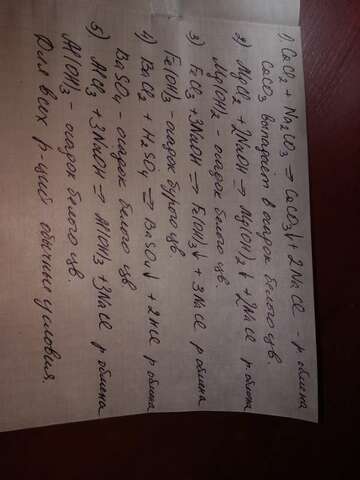 1) CaCl2 + Na2CO3 → CaCO3↓ + 2NaCl - р обмена
CaCO3 выпадает в осадок белого цв.
2) MgCl2 + 2NaOH → Mg(OH)2↓ + 2NaCl р обмена
Mg(OH)2 - осадок белого цв.
3) FeCl3 + 3NaOH → Fe(OH)3↓ + 3NaCl р обмена
Fe(OH)3 - осадок бурого цв.
4) BaCl2 + H2SO4 → BaSO4↓ + 2HCl р обмена
BaSO4 - осадок белого цв
5) AlCl3 + 3NaOH → Al(OH)3 + 3NaCl р обмена
Al(OH)3 - осадок белого цв.
Для всех р-ций обычные условия.